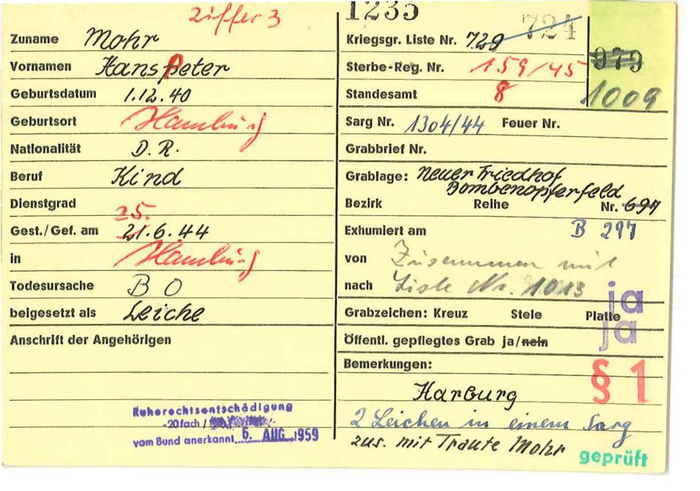 Ziffer 3
Zuname Mohr
Vornamen Hanspeter
Geburtsdatum 1.12.40
Geburtsort Hamburg
Nationalität D.R.
Beruf Kind
Dienstgrad
25.
Gest./Gef. am 21.6.44
in Hamburg
Todesursache B O
beigesetzt als Leiche
Anschrift der Angehörigen
Ruherechtsentschädigung
-20fach/
vom Bund anerkannt 6. AUG. 1959
1235
Kriegsgr. Liste Nr. 729 724
979
Sterbe-Reg. Nr. 159/45
Standesamt 8
1009
Sarg Nr. 1304/44 Feuer Nr.
Grabbrief Nr.
Grablage: Neuer Friedhof
Bombenopferfeld
Bezirk Reihe Nr. 697
Exhumiert am B 297
von Zusammen mit
nach Liste Nr. 1013
ja
Grabzeichen: Kreuz Stele Platte
ja
Öffentl. gepflegtes Grab ja/nein
Bemerkungen: § 1
Harburg
2 Leichen in einem Sarg
zus. mit Traute Mohr
geprüft